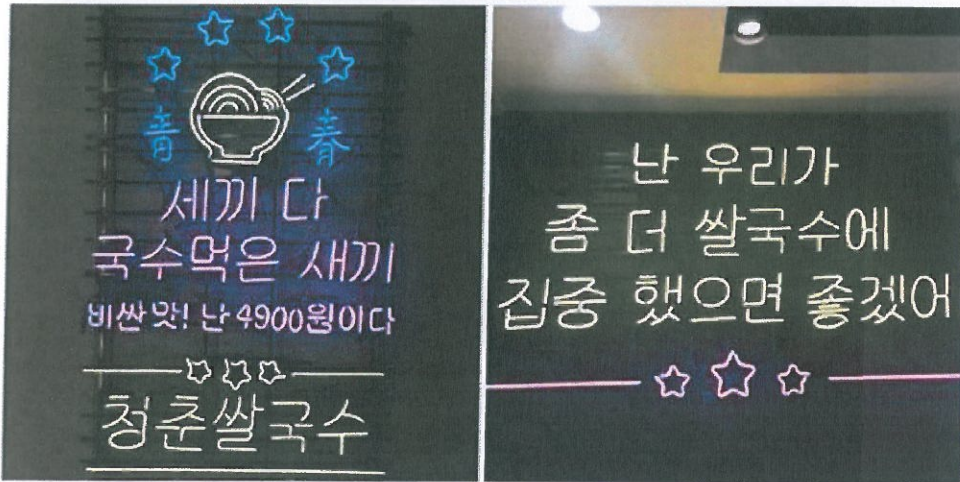 青 春
세끼 다
국수먹은 새끼
비싼 맛! 난 4900원이다
청춘쌀국수
난 우리가
좀 더 쌀국수에
집중 했으면 좋겠어